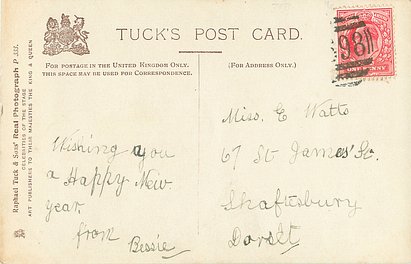 TUCK'S POST CARD.
FOR POSTAGE IN THE UNITED KINGDOM ONLY.
THIS SPACE MAY BE USED FOR CORRESPONDENCE.
(FOR ADDRESS ONLY.)
Raphael Tuck & Sons' Real Photograph P
CELEBRITIES OF THE STAGE
ART PUBLISHERS TO THEIR MAJESTIES THE KING & QUEEN
Wishing you
a Happy New
year.
from
Bessie
Miss. E Watts
67 St James' St.
Shaftesbury
Dorset